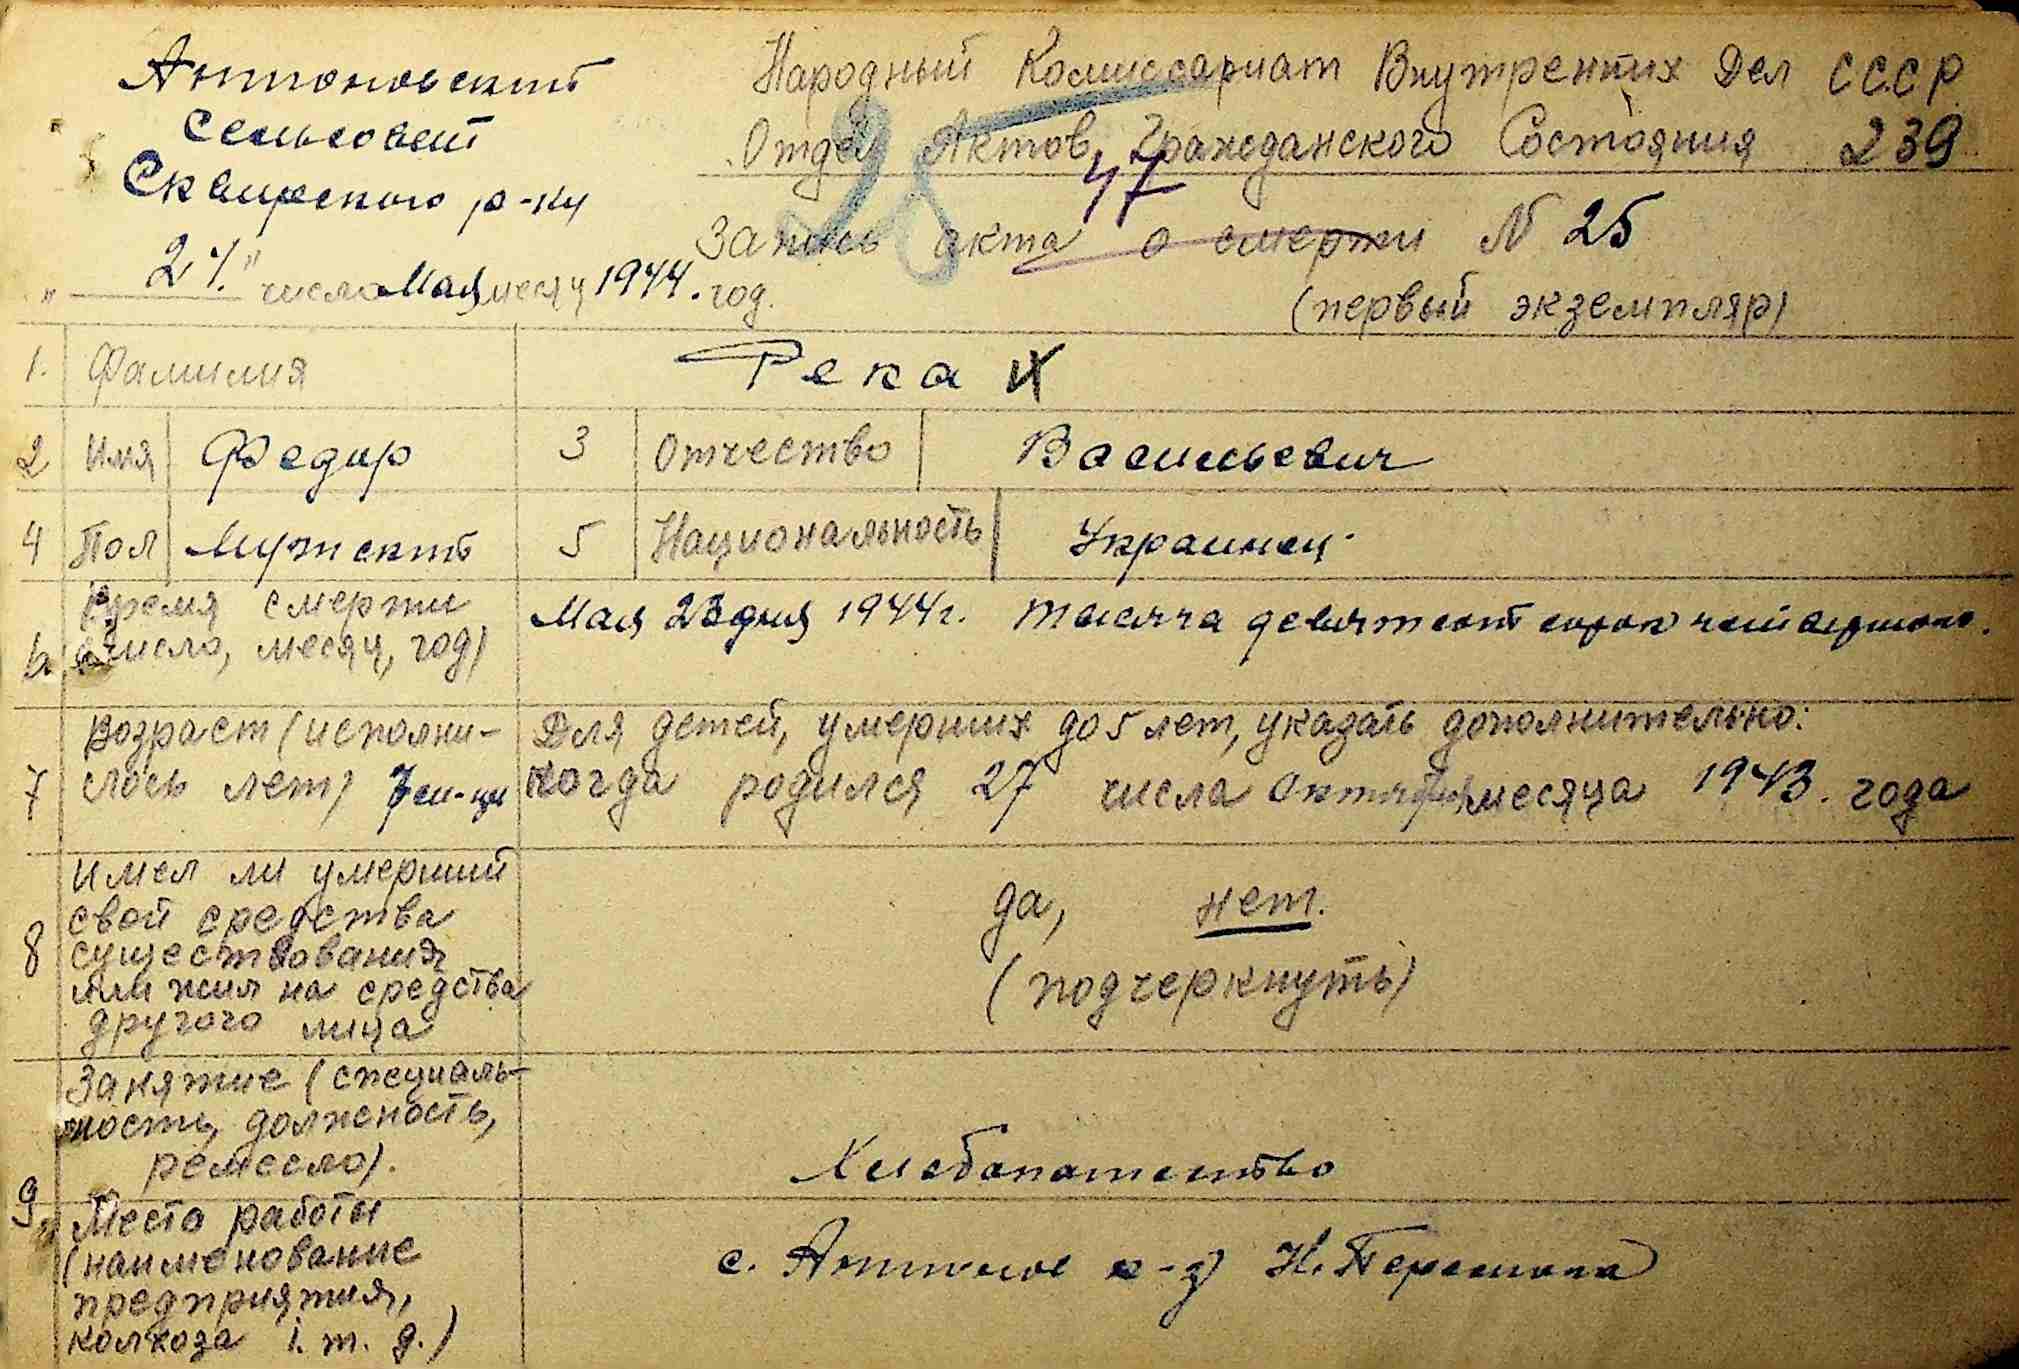 Антоновский
сельсовет
Сквирского р-ну
" 24" числа Мая месяц 1944. год.
Народный Комиссариат Внутренних Дел СССР
Отдел Актов Гражданского Состояния 239
28
47
Запись акта о смерти N 25
(первый экземпляр)
1. Фамилия Река
2 Имя Федир 3 Отчество Васильевич
4 Пол Мужский 5 Национальность Украинец.
6 Время смерти
(число, месяц, год)
Мая 23 дня 1944г. Тысяча девятсот сорок четвертого.
7 Возраст (исполни-
лось лет) 7 м-ци
Для детей, умерших до 5 лет, указать дополнительно:
когда родился 27 числа Октября месяца 1943. года
8 Имел ли умерший
свой средства
существования
или жил на средства
другого лица
да, нет.
(подчеркнуть)
9. Занятие (специаль-
ность, должность,
ремесло).
Хлебопашество
Место работы
(наименование
предприятия,
колхоза і. т. д.)
с. Антонов к-з Н. Перемога